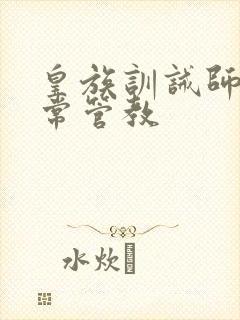 皇族訓誡師
常管教
水炊